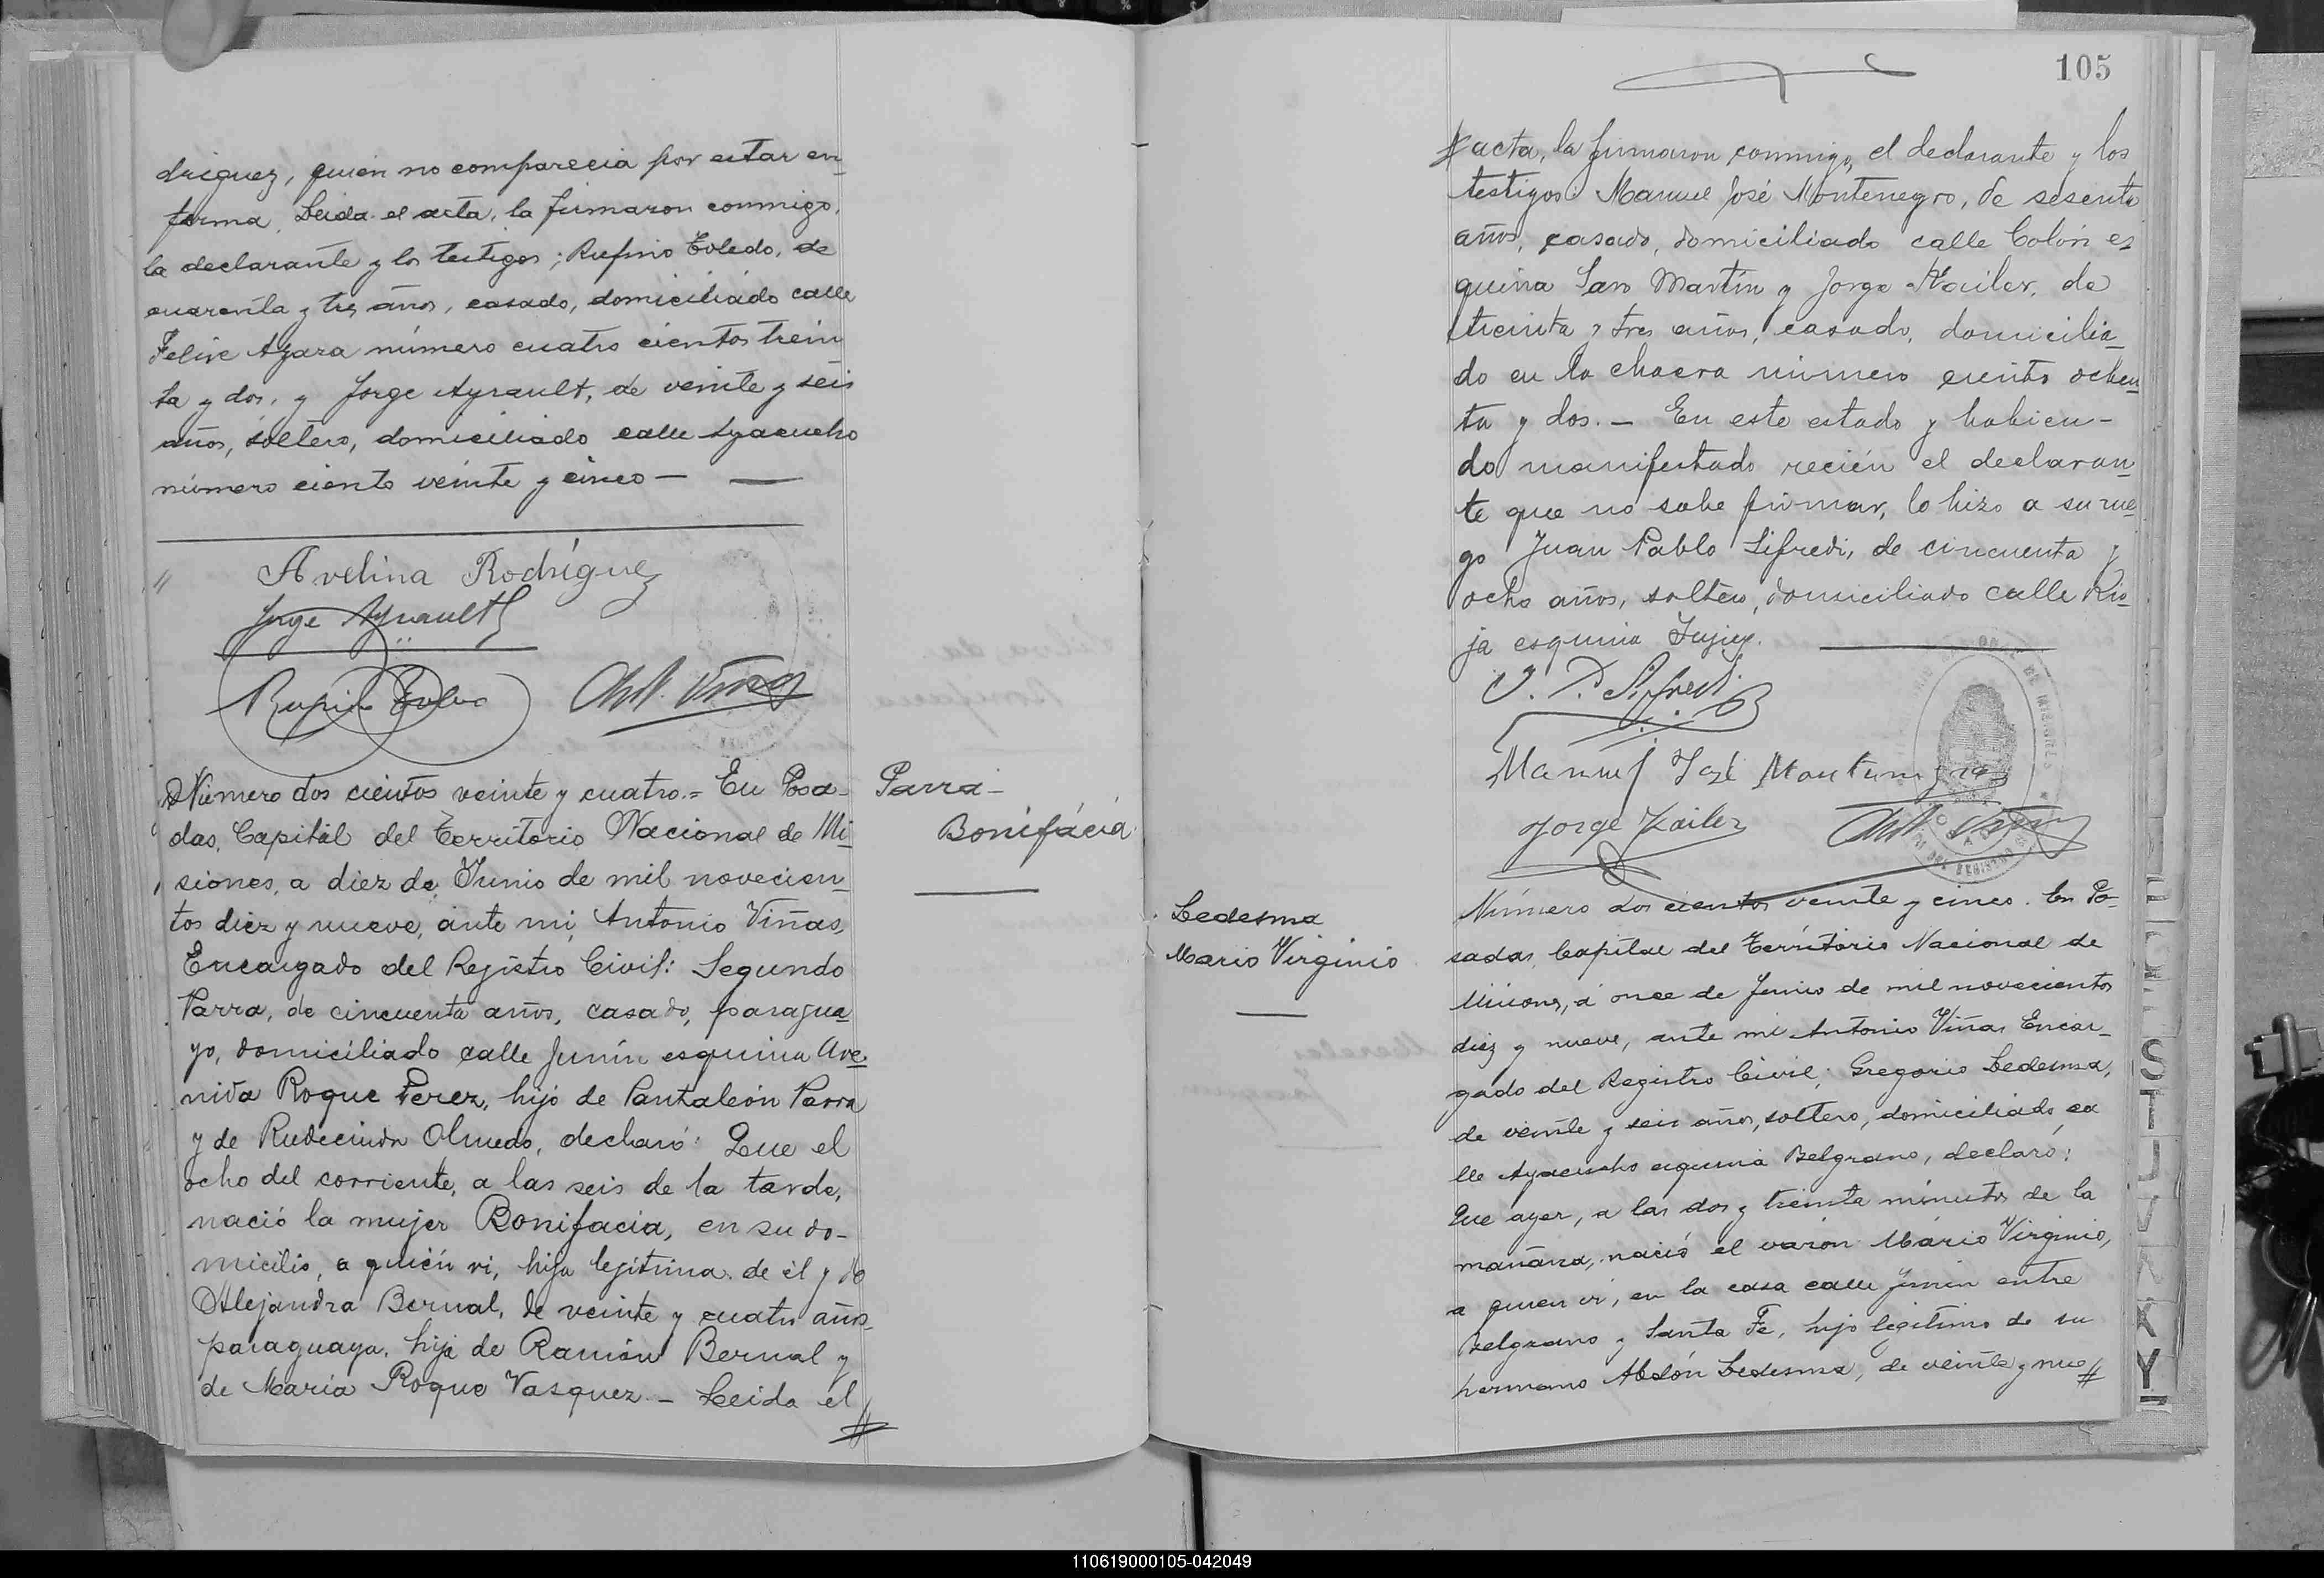 driguez, quien no comparecia por estar en
ferma. Leida el acta, la firmaron conmigo,
la declarante y los testigos; Rufino Toledo, de
cuarenta y tres años, casado, domiciliado calle
Felix Azara número cuatro cientos trein
ta y dos, y Jorge Ayrault, de veinte y seis
años, soltero, domiciliado calle Ayacucho
número ciento veinte y cinco —
Avelina Rodríguez
Jorge Ayrault
Rufino Toledo
Ant. Viñas
Número dos cientos veinte y cuatro.= En Posa-
das, Capital del Territorio Nacional de Mi
siones, a diez de Junio de mil novecien
tos diez y nueve, ante mi, Antonio Viñas,
Encargado del Registro Civil: Segundo
Parra, de cincuenta años, casado, paragua
yo, domiciliado calle Junín esquina Ave
nida Roque Perez, hijo de Pantaleón Parra
y de Rudecinda Olmedo, declaró: Que el
ocho del corriente, a las seis de la tarde,
nació la mujer Bonifacia, en su do-
micilio, a quién vi, hija legitima de él y de
Alejandra Bernal, de veinte y cuatro años
paraguaya, hija de Ramón Bernal y
de María Roque Vasquez. - Leida el
Parra-
Bonifácia
105
acta, la firmaron conmigo, el declarante y los
testigos: Manuel José Montenegro, de sesenta
años, casado, domiciliado calle Colón es
quina San Martín y Jorge de
treinta y tres años, casado, domicilia
do en la chacra número ciento ochen
ta y dos. - En este estado y habien-
do manifestado recién el declaran
te que no sabe firmar, lo hizo a su rue
go Juan Pablo Sifredi, de cincuenta y
ocho años, soltero, domiciliado calle Rio
ja esquina Jujuy.
J. P. Sifredi
Manuel José Montenegro
Jorge
Ant. Viñas
Ledesma
Mario Virginio
Número dos cientos veinte y cinco. En Po-
sadas, Capital del Territorio Nacional de
Misiones, á once de Junio de mil novecientos
diez y nueve, ante mi Antonio Viñas Encar-
gado del Registro Civil; Gregorio Ledesma,
de veinte y seis años, soltero, domiciliado ca
lle Ayacucho esquina Belgrano, declaró:
Que ayer, a las dos y treinta minutos de la
mañana, nació el varón Mário Virginio,
a quien vi, en la casa calle Junin entre
Belgrano y Santa Fe, hijo legítimo de su
hermano Abdón Ledesma, de veinte y nue
S
T
U
V
X
Y
110619000105-042049